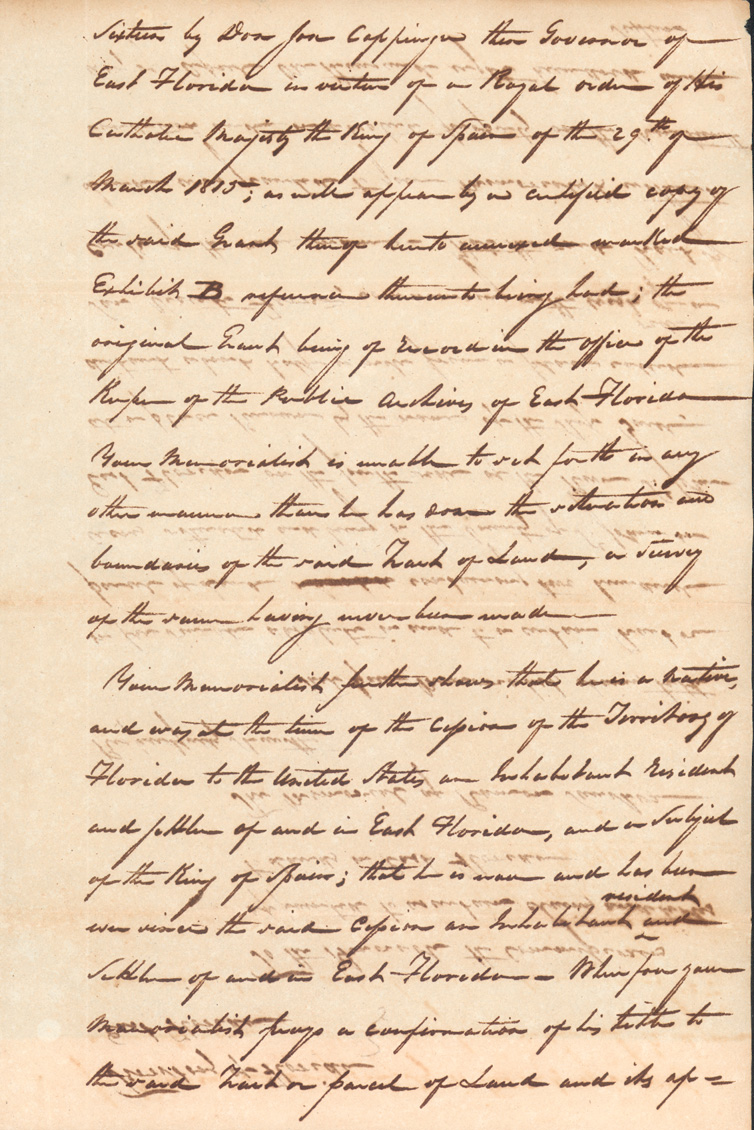 Sixteen by Don Jose Coppinger then Governor of
East Florida in virtue of a Royal order of His
Catholic Majesty the King of Spain of the 29th of
March 1815; as will appear by a certified copy of
the said Grant thereof hereto annexed marked
Exhibit B reference thereunto being had; the
original Grant being of Record in the office of the
Keeper of the Public Archives of East Florida
Your Memorialist is unable to set forth in any
other manner than he has done the situation and
boundaries of the said Tract of Land, a Survey
of the same having never been made
Your Memorialist further shews that he is a native,
and was at the time of the Cession of the Territory of
Florida to the United States an Inhabitant Resident
and settler of and in East Florida, and a Subject
of the King of Spain; that he is now and has been
resident
ever since the said Cession an Inhabitant and
Settler of and in East Florida = Wherefore your
Memorialist prays a confirmation of his title to
the said Tract or parcel of Land and its ap=